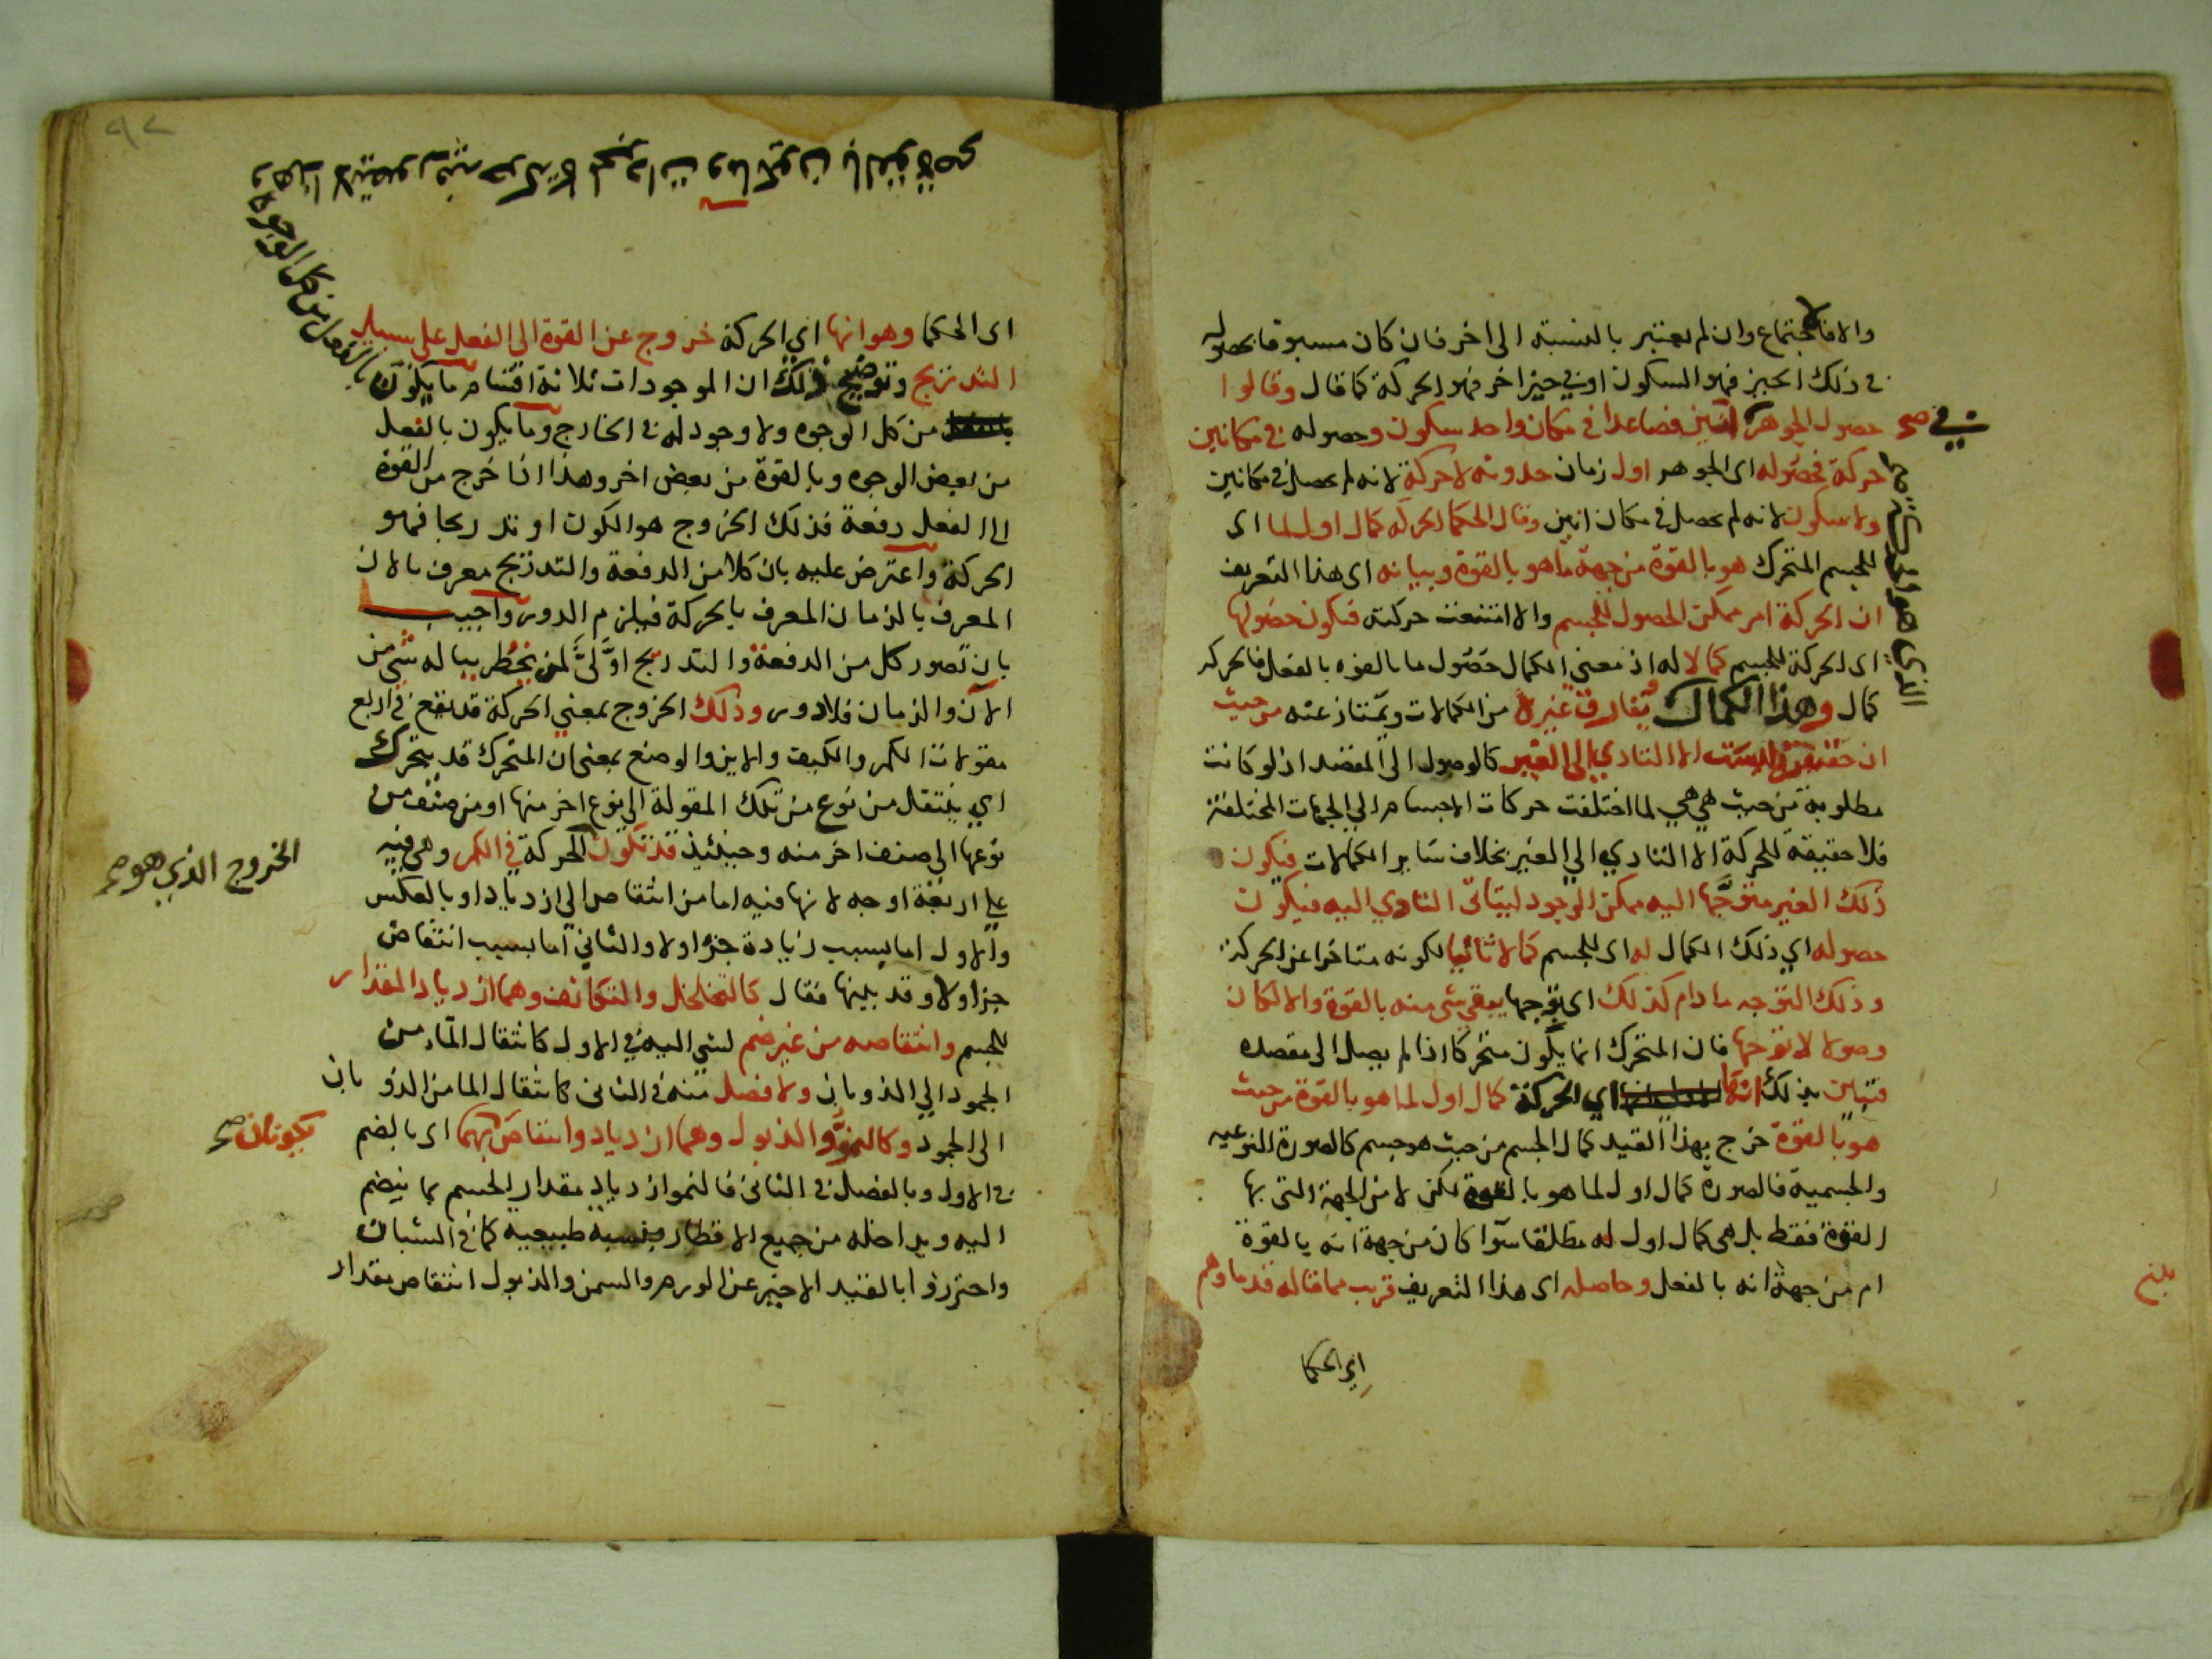 والا فالاجتماع وان لم يعتبر بالنسبة الى اخر فان كان مسبوقا بحصوله
في ذلك الحيز فهو السكون او في حيز اخر فهو الحركة كما قال وقالوا
حصول الجوهر آنين فصاعدا في مكان واحد سكون وحصوله في مكانين
في صح
حركة فحصوله اى الجوهر اول زمان حدوثه لا حركة لانه لم يحصل في مكانين
ولا سكون لانه لم يحصل في مكان انين وقال الحكما الحركة كمال اول لما اى
للجسم المتحرك هو بالقوة من جهة ما هو بالقوة وبيانه اى هذا التعريف
ان الحركة امر ممكن الحصول للجسم والا امتنعت حركته فيكون حصولها
اى الحركة للجسم كمالا له اذ معنى الكمال حصول ما بالقوه بالفعل فالحركة
كمال وهذا الكمال يفارق غيره من الكمالات ويمتاز عنه من حيث
ان حقيقته ليست الا التادي الى الغير كالوصول الى المقصد اذ لو كانت
مطلوبة من حيث هي هي لما اختلفت حركات الاجسام الي الجهات المختلفة
فلا حقيقة للحركة الا التادي الي الغير بخلاف ساير الكمالات فيكون
ذلك الغير متوجها اليه ممكن الوجود ليتاتى التادي اليه فيكون
حصوله اي ذلك الكمال له اى للجسم كمالا ثانيا لكونه متاخرا عن الحركة
وذلك التوجه ما دام كذلك اى توجها يبقى شى منه بالقوة والا لكان
وصولا لا توجها فان المتحرك انما يكون متحركا اذا لم يصل الى مقصده
فتبين بذلك انها اي الحركة كمال اول لما هو بالقوة من حيث
هو بالقوة خرج بهذا القيد كمال الجسم من حيث هو جسم كالصورة النوعيه
والجسمية فالصورة كمال اول لما هو بالقوة لكن لا من الجهة التى بها
القوة فقط بل هى كمال اول له مطلقا سوآ كان من جهة انه بالقوة
ام من جهة انه بالفعل وحاصله اى هذا التعريف قريب مما قاله قدماوهم
اي الحكما
بلغ
اى الحكما وهو انها اي الحركة خروج عن القوة الى الفعل على سبيل
التدريج وتوضيح ذلك ان الموجودات ثلاثة اقسام ما يكون
بالفعل من كل الوجوه
وهذا لا يتصور فيه حركة كالمجردات وما يكون بالقوة صح
من كل الوجوه ولا وجود له في الخارج وما يكون بالفعل
من بعض الوجوه وبالقوة من بعض اخر وهذا اذا خرج من القوة
الى الفعل دفعة فذلك الخروج هو الكون او تدريجا فهو
الحركة واعترض عليه بان كلا من الدفعة والتدريج معرف بالان
المعرف بالزمان المعرف بالحركة فيلزم الدور واجيب
بان تصور كل من الدفعة والتدريج اوَّليٌّ لمن يخطر بباله شي من
الآن والزمان فلا دور وذلك الخروج بمعني الحركة قد يقع في اربع
مقولات الكم والكيف والاين والوضع بمعنى ان المتحرك قد يتحرك
اي ينتقل من نوع من تلك المقولة الي نوع اخر منها او من صنف من
نوعها الى صنف اخر منه وحينئذ قد تكون الحركة في الكم وهى فيه
الخروج الذي هو صح
علي اربعة اوجه لانها فيه اما من انتقاص الي ازدياد او بالعكس
والاول اما بسبب زيادة جزء او لا والثاني اما بسبب انتقاص
جزء او لا وقد بينها فقال كالتخلخل والتكاثف وهما ازدياد المقدار
للجسم وانتقاصه من غير ضم لشي اليه في الاول كانتقال المآء من
الجمود الي الذوبان ولا فصل منه في الثانى كانتقال الما من الذوبان
الى الجمود وكالنموّ والذبول وهما ازدياد وانتقاص بهما اى بالضم
يكونان صح
في الاول وبالفصل في الثانى فالنمو ازدياد مقدار الجسم بما ينضم
اليه ويداخله من جميع الاقطار بنسبة طبيعيه كما في الشباب
واحترزوا بالقيد الاخير عن الورم والسمن والذبول انتقاص مقدار